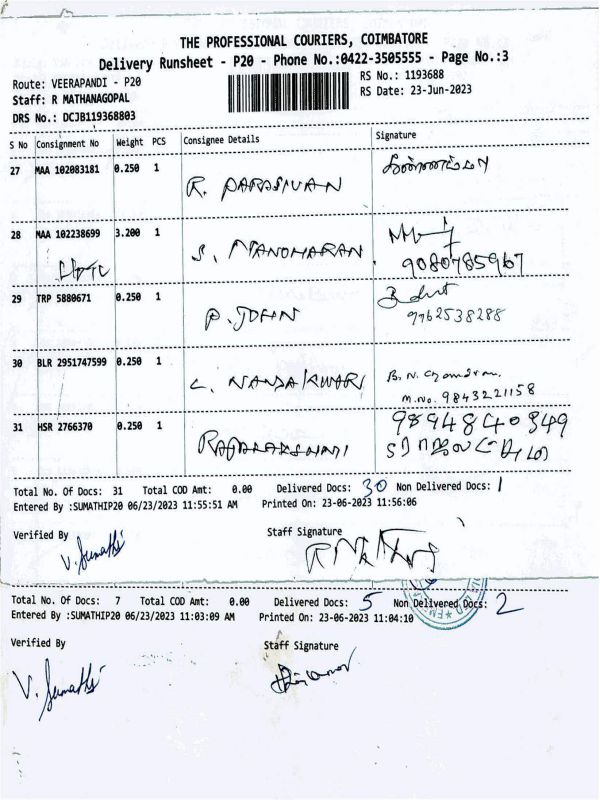 THE PROFESSIONAL COURIERS, COIMBATORE
Delivery Runsheet - P20 - Phone No.:0422-3505555 - Page No.:3
Route: VEERAPANDI - P20
RS No.: 1193688
Staff: R MATHANAGOPAL
RS Date: 23-Jun-2023
DRS No.: DCJB119368803
S No Consignment No Weight PCS Consignee Details Signature
27 MAA 102083181 0.250 1 R. PARASIVAN
28 MAA 102238699 3.200 1 S. MANOHARAN
9080785967
29 TRP 5880671 0.250 1 P. JOHN
9962538288
30 BLR 2951747599 0.250 1 L. NANDAKUMARI B.N.
M.No. 9843221158
31 HSR 2766370 0.250 1 9894840349
ராஜலட்சுமி
Total No. Of Docs: 31 Total COD Amt: 0.00 Delivered Docs: 30 Non Delivered Docs: 1
Entered By :SUMATHIP20 06/23/2023 11:55:51 AM Printed On: 23-06-2023 11:56:06
Verified By Staff Signature
V. Sumathi
Total No. Of Docs: 7 Total COD Amt: 0.00 Delivered Docs: 5 Non Delivered Docs: 2
Entered By :SUMATHIP20 06/23/2023 11:03:09 AM Printed On: 23-06-2023 11:04:10
Verified By Staff Signature
V. Sumathi